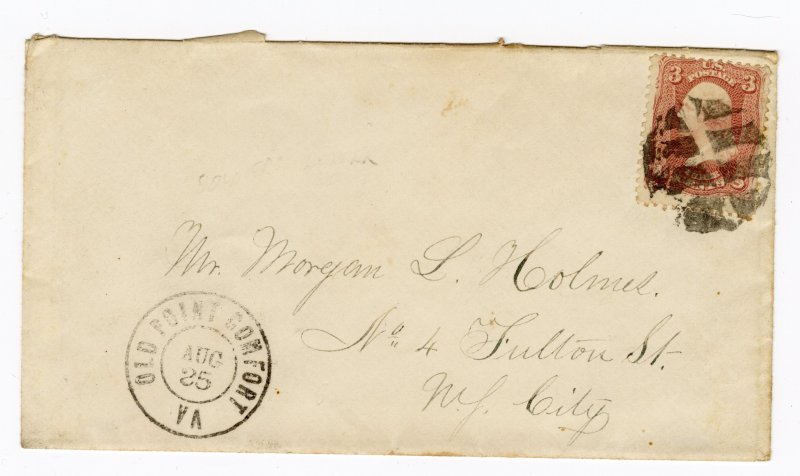 3 U.S. 3
POSTAGE
Mr. Morgan L. Holmes.
No. 4 Fulton St.
N.Y. City
OLD POINT COMFORT
AUG
25
VA